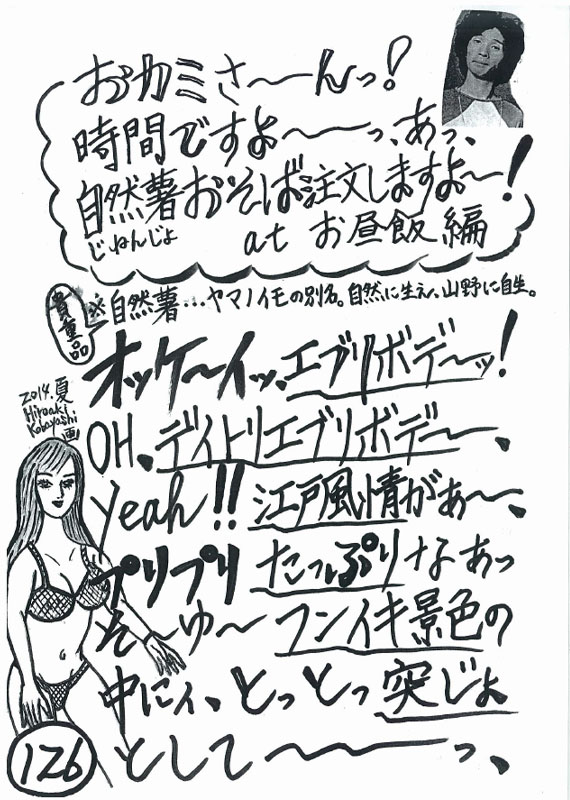 おカミさ〜〜んっ!
時間ですよ〜〜っ、あっ、
自然薯おそば注文しますよ〜!
じねんじょ
at お昼飯編
貴重品
※自然薯…ヤマノイモの別名。自然に生え、山野に自生。
オッケ〜イッ、エブリボデ〜ッ!
2014.夏
Hiroaki
Kobayashi
画
OH、デイトリエブリボデー、
yeah!!江戸風情がぁ〜、
プリプリたっぷりなあっ
そ〜ゆ〜フンイキ景色の
中にィ、とっとっ突じょ
として〜〜っ、
126